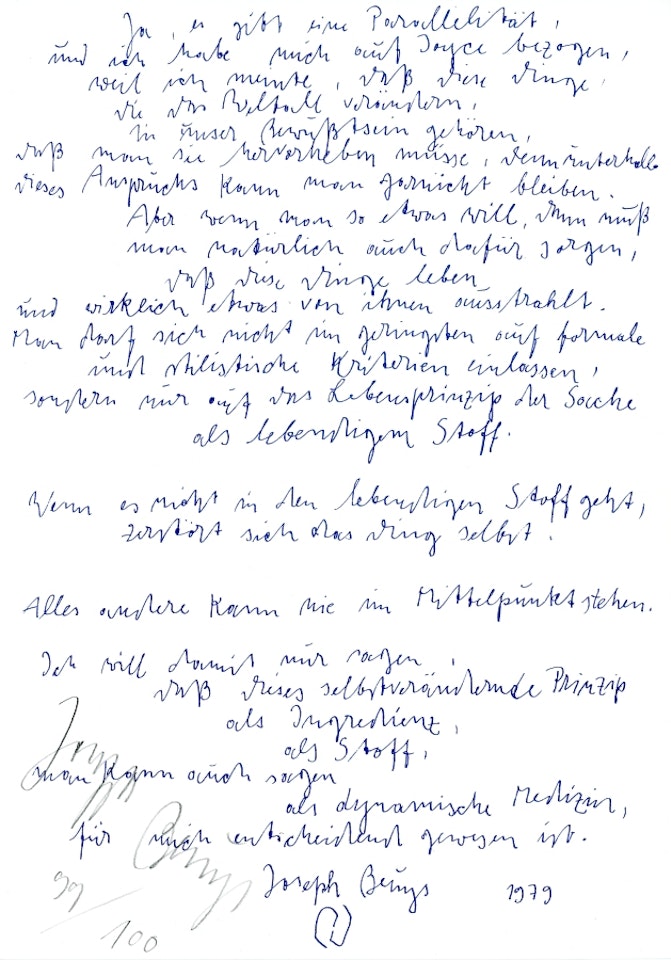 Ja, es gibt eine Parallelität,
und ich habe mich auf Joyce bezogen,
weil ich meinte, daß diese Dinge,
die das Weltall verändern,
in unser Bewußtsein gehören,
daß man sie hervorheben müsse, denn unterhalb
dieses Anspruchs kann man garnicht bleiben.
Aber wenn man so etwas will, dann muß
man natürlich auch dafür sorgen,
daß diese Dinge leben
und wirklich etwas von ihnen ausstrahlt.
Man darf sich nicht im geringsten auf formale
und stilistische Kriterien einlassen,
sondern nur auf das Lebensprinzip der Sache
als lebendigem Stoff.
Wenn es nicht in den lebendigen Stoff geht,
zerstört sich das Ding selbst.
Alles andere kann nie im Mittelpunkt stehen.
Ich will damit nur sagen,
daß dieses selbstverändernde Prinzip
als Ingredienz,
als Stoff,
man kann auch sagen
als dynamische Medizin,
für mich entscheidend gewesen ist.
Joseph Beuys 1979
Joseph
Beuys
99
100